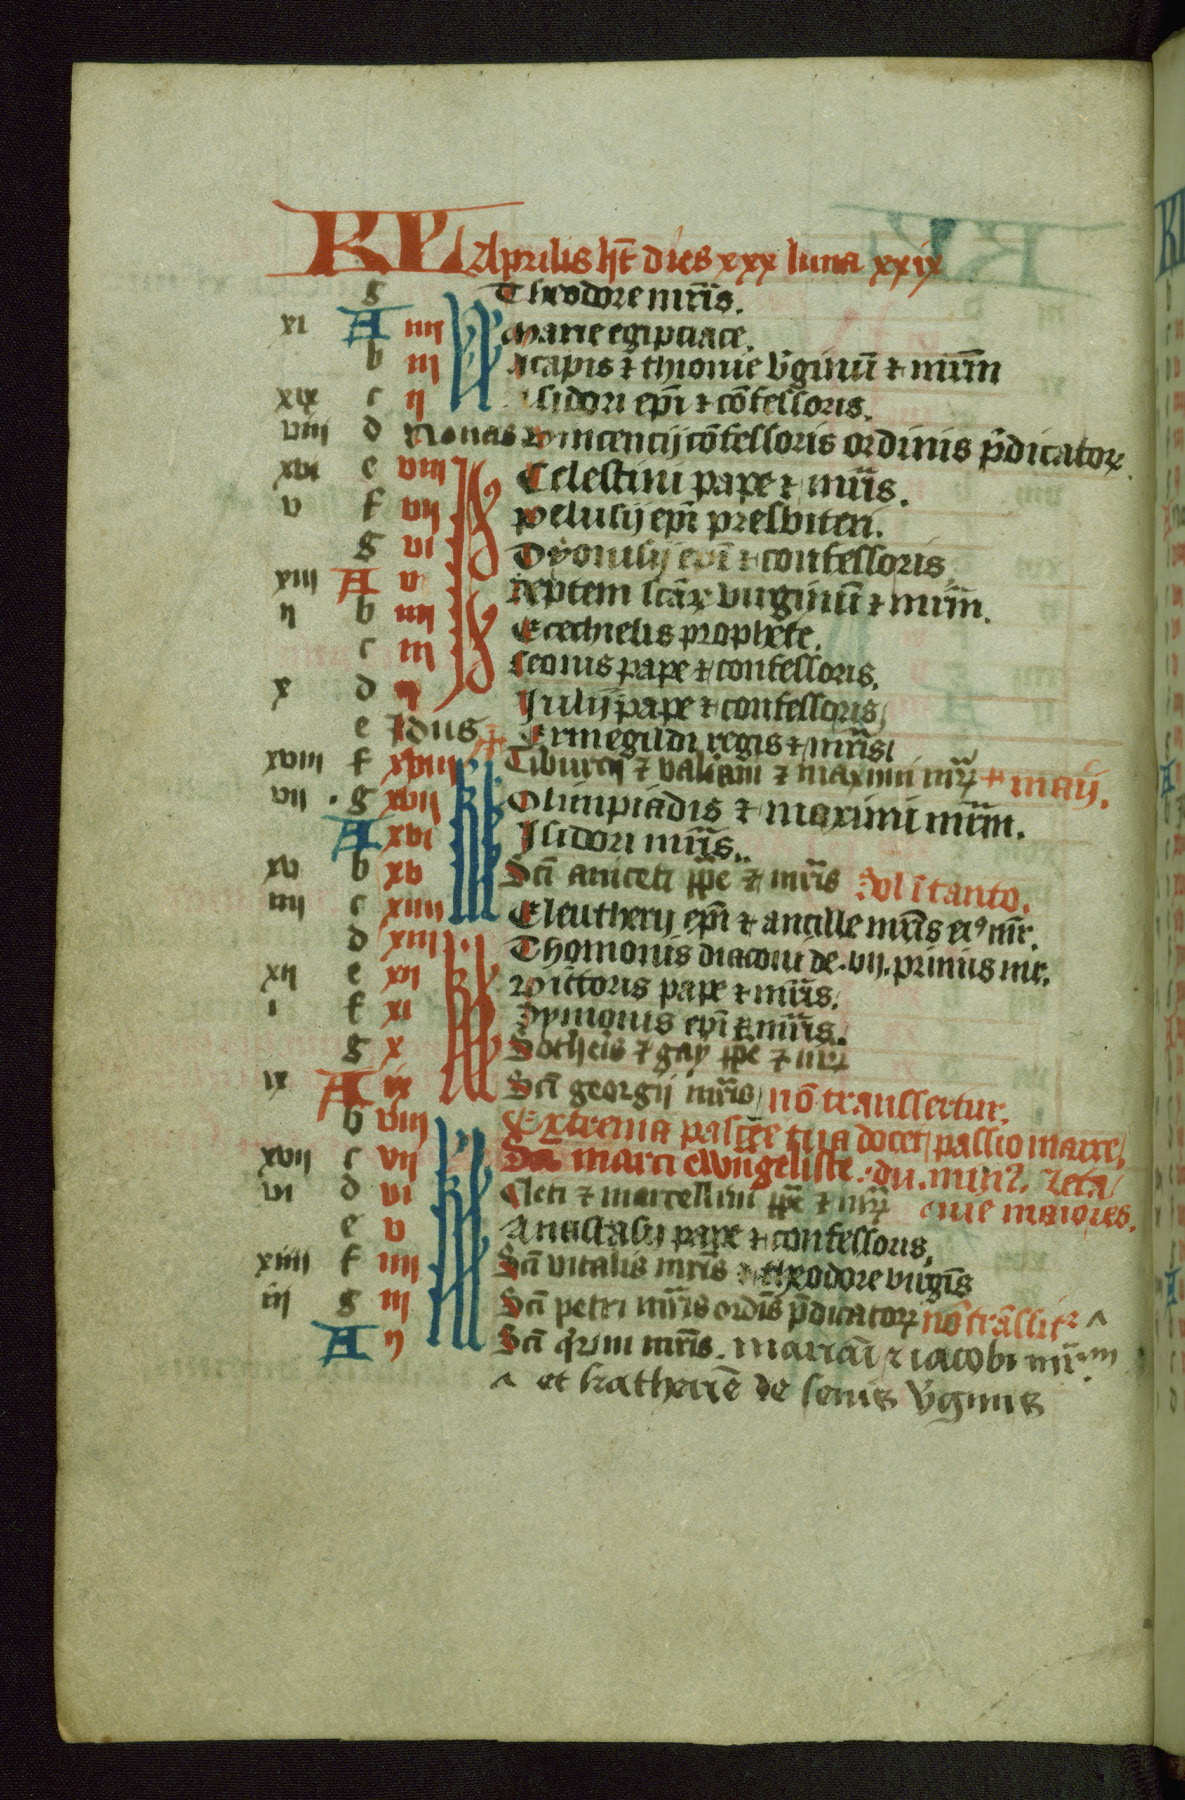 KL Aprilis ht̄ dies xxx luna xxix
g Theodore mr̄is.
xi A iiii Marie egipciace.
b iii Agapis ⁊ thionie v̄ginū ⁊ mr̄m
xix c ii Isidori ep̄i ⁊ cōfessoris.
viii d Nonas Vincencij cōfessoris ordinis p̄dicatoꝝ.
xvi e viii Celestini pape ⁊ mr̄is.
v f vii Pelusij ep̄i presbiteri.
g vi Dyonisij ep̄i ⁊ confessoris
xiii A v Septem scāꝝ virginū ⁊ mr̄m.
ii b iiii Ezechielis prophete.
c iii Leonis pape ⁊ confessoris.
x d ii Julij pape ⁊ confessoris
e Idus Ermegildi regis ⁊ mr̄is
xviii f xviii Tiburcij ⁊ valiani ⁊ maximi mr̄ꝝ + maij.
vii g xvii Olimpiadis ⁊ maximi mr̄m.
A xvi Isidori mr̄is.
xv b xv Sc̄i aniceti pp̄e ⁊ mr̄is Sol ī tauro.
iiii c xiiii Eleutherij ep̄i ⁊ ancille mr̄is eiꝰ mr̄.
d xiii Thomonis diaconi de .vij. primis mr̄.
xii e xii Victoris pape ⁊ mr̄is.
i f xi Symonis ep̄i ⁊ mr̄is.
g x Sotheis ⁊ gay pp̄e ⁊ mr̄ꝝ
ix A ix Sc̄i georgij mr̄is nō transfertur.
b viii Extrema pasce tua docet passio marce
xvii c vii Sc̄i marci ewangeliste. du. min. Leta
vi d vi Cleti ⁊ marcellini pp̄e ⁊ mr̄ꝝ nie maiores.
e v Anastasij pape ⁊ confessoris,
xiiii f iiii Sc̄i vitalis mr̄is ⁊ theodore virgīs
iii g iii Sc̄i petri mr̄is ordīs p̄dicatoꝝ nō trāsfit^r ^
A ii Sc̄i q̄rini mr̄is. mariāi ⁊ iacobi mr̄m.
^ et katherīe de senis v̄ginis